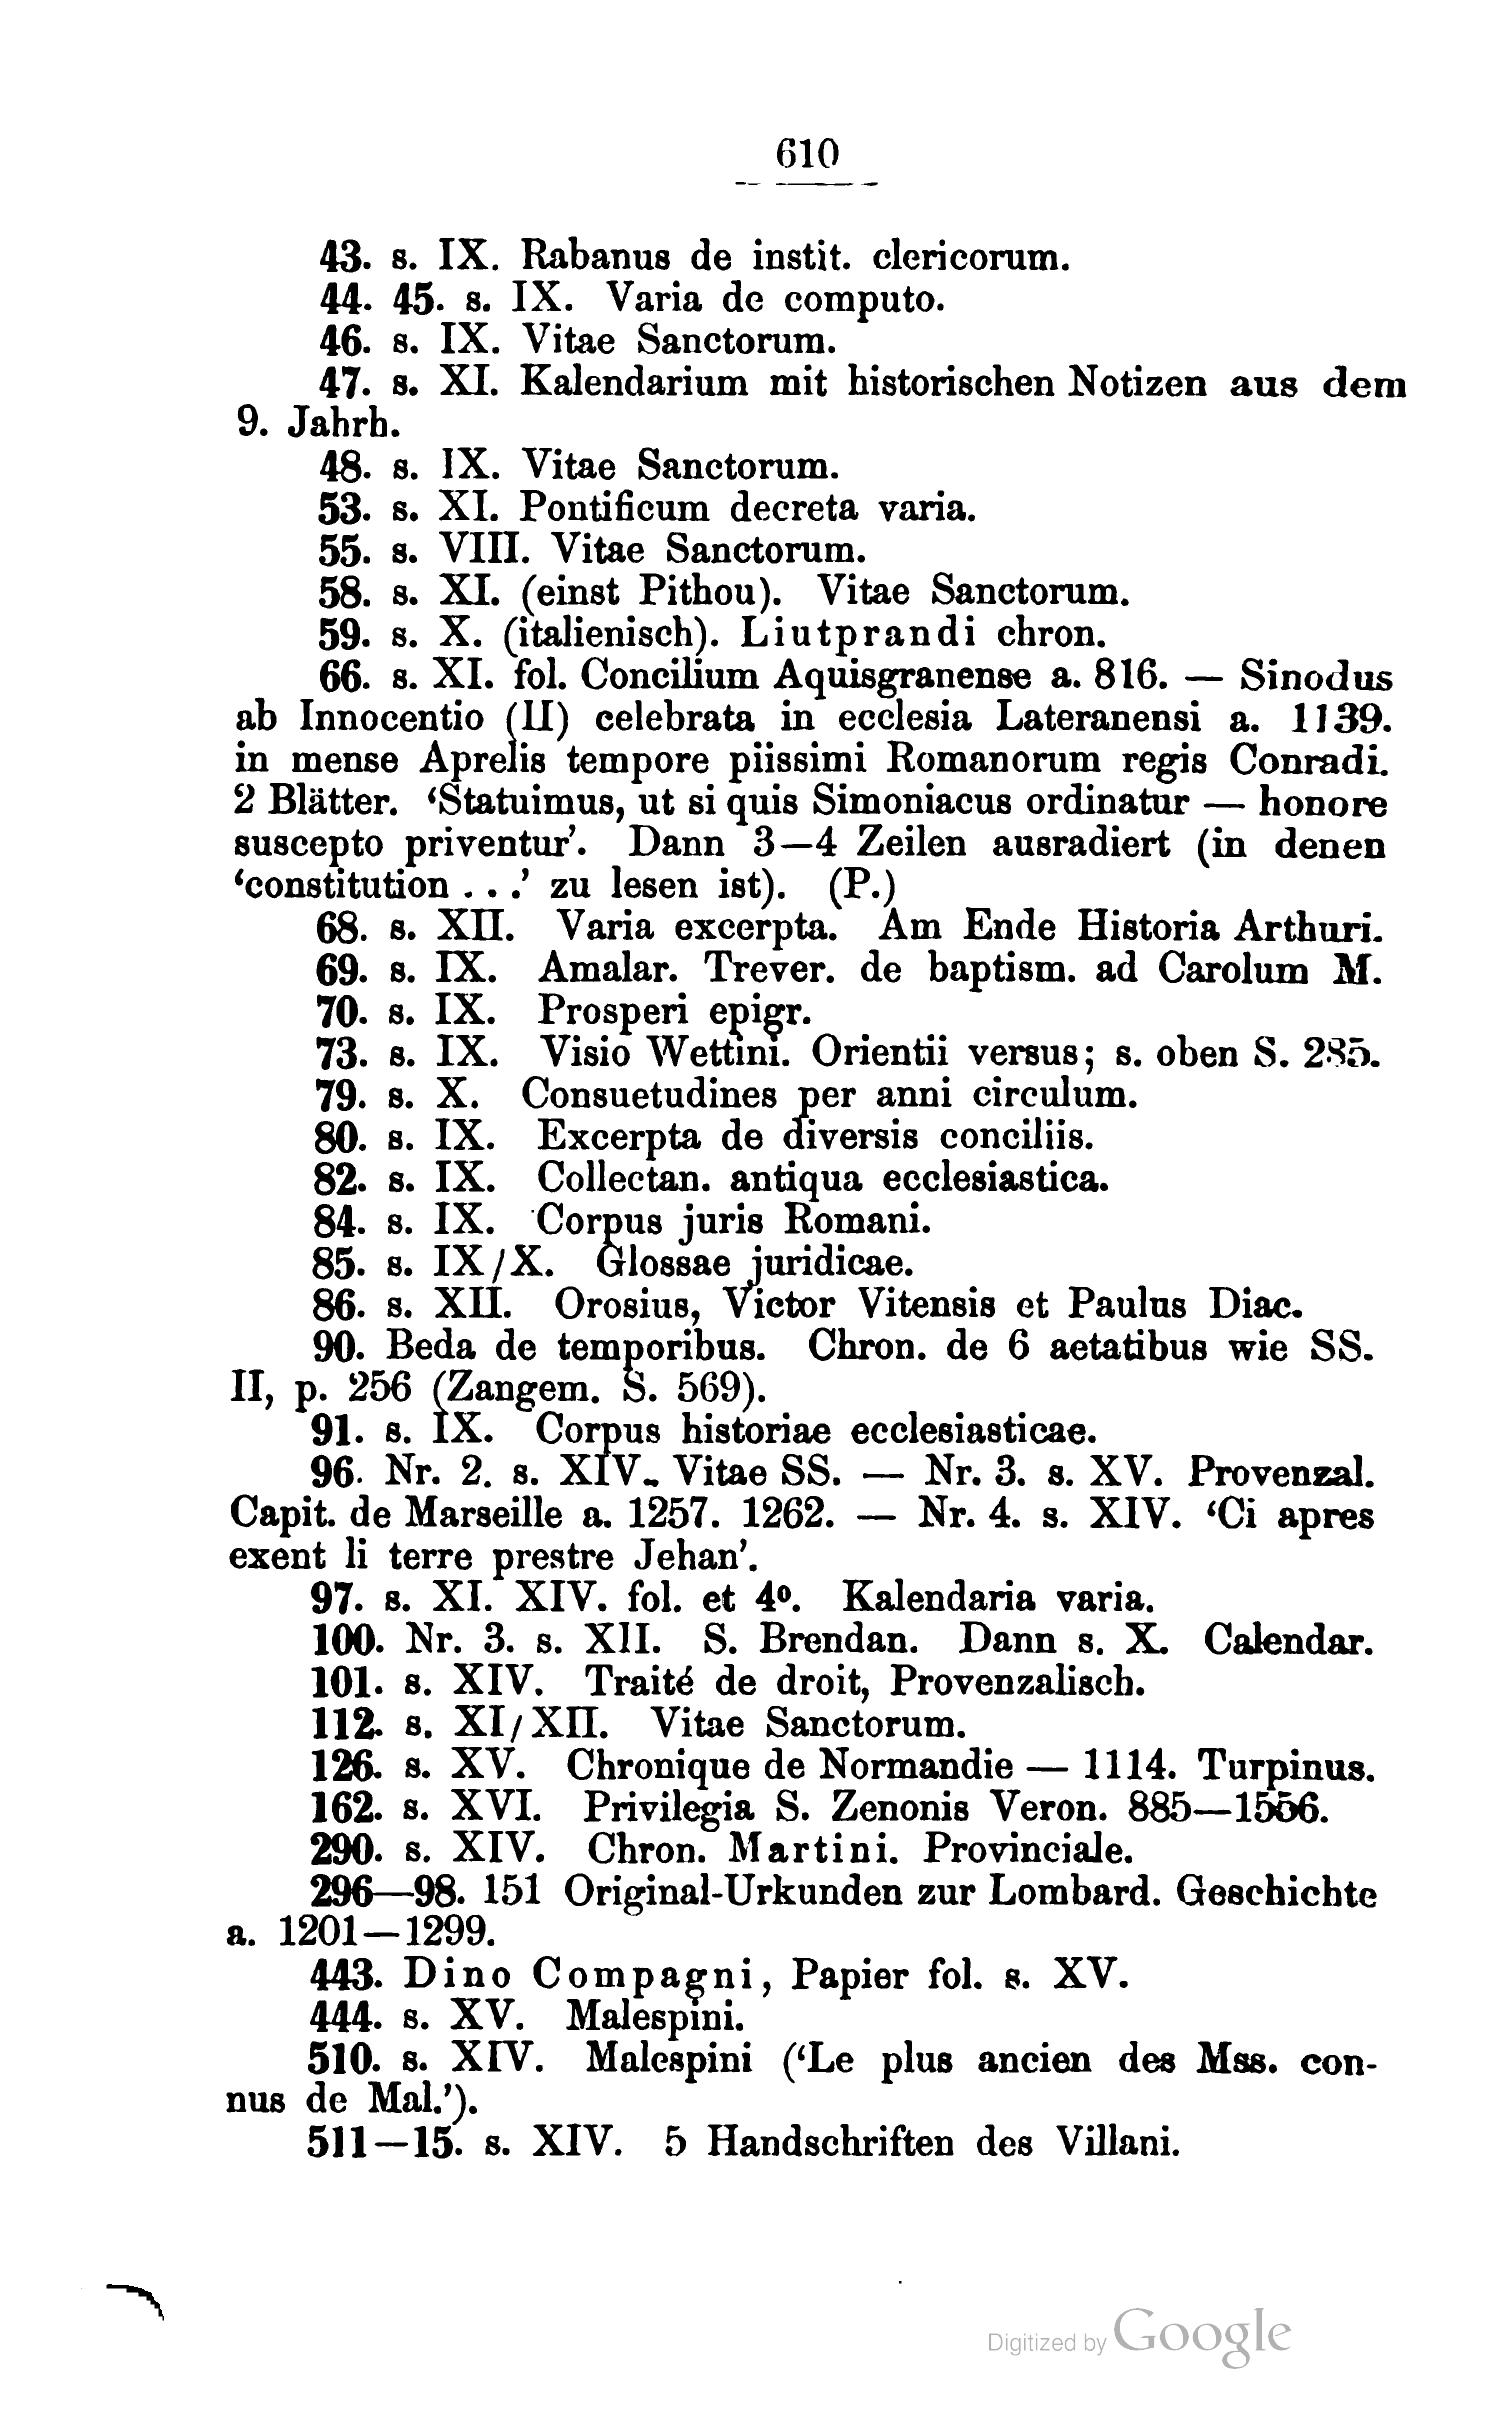 610
43. s. IX. Rabanus de instit. clericorum.
44. 45. s. IX. Varia de computo.
46. s. IX. Vitae Sanctorum.
47. s. XI. Kalendarium mit historischen Notizen aus dem
9. Jahrh.
48. s. IX. Vitae Sanctorum.
53. s. XI. Pontificum decreta varia.
55. s. VIII. Vitae Sanctorum.
58. s. XI. (einst Pithou). Vitae Sanctorum.
59. s. X. (italienisch). Liutprandi chron.
66. s. XI. fol. Concilium Aquisgranense a. 816. — Sinodus
ab Innocentio (II) celebrata in ecclesia Lateranensi a. 1139.
in mense Aprelis tempore piissimi Romanorum regis Conradi.
2 Blätter. ‘Statuimus, ut si quis Simoniacus ordinatur — honore
suscepto priventur’. Dann 3—4 Zeilen ausradiert (in denen
‘constitution . . .’ zu lesen ist). (P.)
68. s. XII. Varia excerpta. Am Ende Historia Arthuri.
69. s. IX. Amalar. Trever. de baptism. ad Carolum M.
70. s. IX. Prosperi epigr.
73. s. IX. Visio Wettini. Orientii versus; s. oben S. 285.
79. s. X. Consuetudines per anni circulum.
80. s. IX. Excerpta de diversis conciliis.
82. s. IX. Collectan. antiqua ecclesiastica.
84. s. IX. Corpus juris Romani.
85. s. IX/X. Glossae juridicae.
86. s. XII. Orosius, Victor Vitensis et Paulus Diac.
90. Beda de temporibus. Chron. de 6 aetatibus wie SS.
II, p. 256 (Zangem. S. 569).
91. s. IX. Corpus historiae ecclesiasticae.
96. Nr. 2. s. XIV. Vitae SS. — Nr. 3. s. XV. Provenzal.
Capit. de Marseille a. 1257. 1262. — Nr. 4. s. XIV. ‘Ci apres
exent li terre prestre Jehan’.
97. s. XI. XIV. fol. et 4º. Kalendaria varia.
100. Nr. 3. s. XII. S. Brendan. Dann s. X. Calendar.
101. s. XIV. Traité de droit, Provenzalisch.
112. s. XI/XII. Vitae Sanctorum.
126. s. XV. Chronique de Normandie — 1114. Turpinus.
162. s. XVI. Privilegia S. Zenonis Veron. 885—1556.
290. s. XIV. Chron. Martini. Provinciale.
296—98. 151 Original-Urkunden zur Lombard. Geschichte
a. 1201—1299.
443. Dino Compagni, Papier fol. s. XV.
444. s. XV. Malespini.
510. s. XIV. Malespini (‘Le plus ancien des Mss. con-
nus de Mal.’).
511—15. s. XIV. 5 Handschriften des Villani.
Digitized by Google